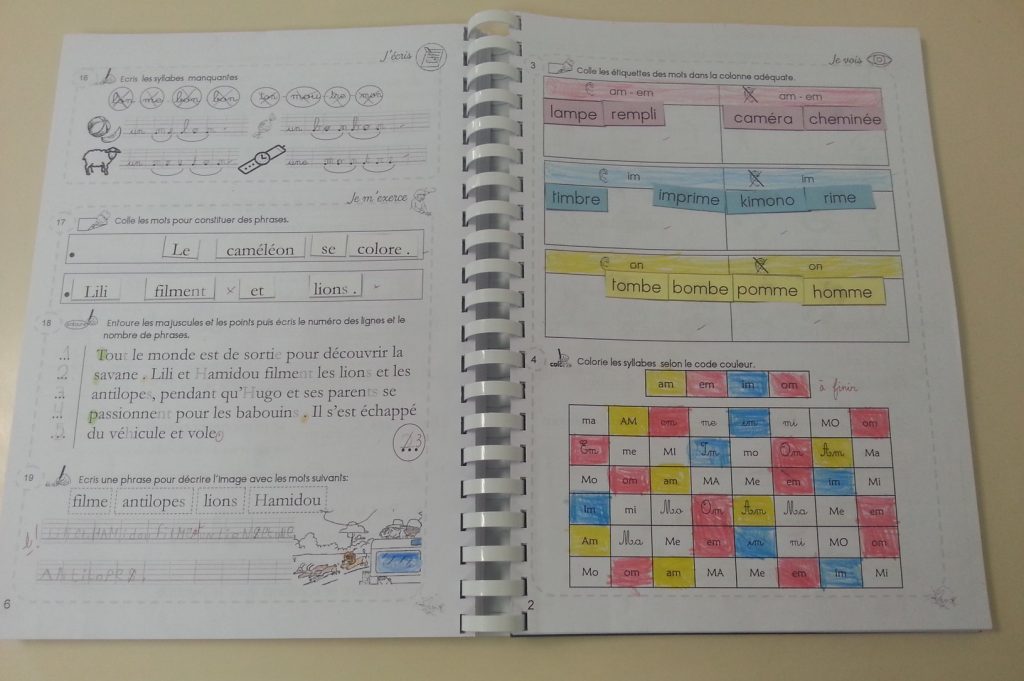 J'écris
16 Ecris les syllabes manquantes
lon me bon tre
un
un bonbon
un mouton
une montre
Je m'exerce
17 Colle les mots pour constituer des phrases.
Le caméléon se colore .
Lili filment et lions .
18 Entoure les majuscules et les points puis écris le numéro des lignes et le
nombre de phrases.
Tout le monde est de sortie pour découvrir la
savane . Lili et Hamidou filment les lions et les
antilopes, pendant qu'Hugo et ses parents se
passionnent pour les babouins . Il s'est échappé
du véhicule et vole
19 Ecris une phrase pour décrire l'image avec les mots suivants:
filme antilopes lions Hamidou
6
Je vois
3 Colle les étiquettes des mots dans la colonne adéquate.
am - em am - em
lampe rempli caméra cheminée
im im
timbre imprime kimono rime
on on
tombe bombe pomme homme
4 Colorie les syllabes selon le code couleur.
am em im om à finir
ma AM om me im mi MO om
Em me MI Im mo Om Am Ma
Mo om am MA Me em im Mi
Im mi Mo Om Am Ma Me em
Am Ma Me em im mi MO om
Mo om am MA Me em im Mi
2